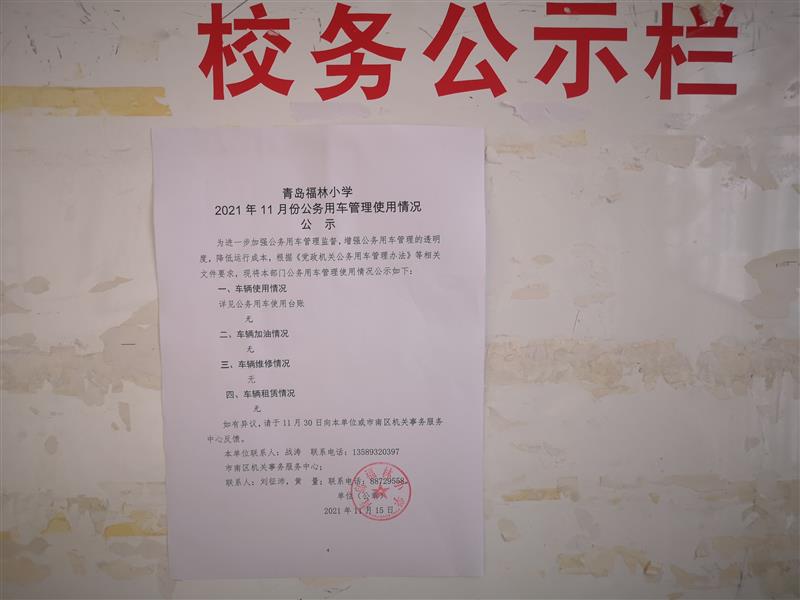 校务公示栏
青岛福林小学
2021年11月份公务用车管理使用情况
公 示
为进一步加强公务用车管理监督,增强公务用车管理的透明
度,降低运行成本,根据《党政机关公务用车管理办法》等相关
文件要求,现将本部门公务用车管理使用情况公示如下:
一、车辆使用情况
详见公务用车使用台账
无
二、车辆加油情况
无
三、车辆维修情况
无
四、车辆租赁情况
无
如有异议,请于11月30日向本单位或市南区机关事务服务
中心反馈。
本单位联系人:战涛 联系电话:13589320397
市南区机关事务服务中心;
联系人:刘征沛,黄 量;联系电话:88729558。
单位(公章)
2021年11月15日
青岛福林小学
4